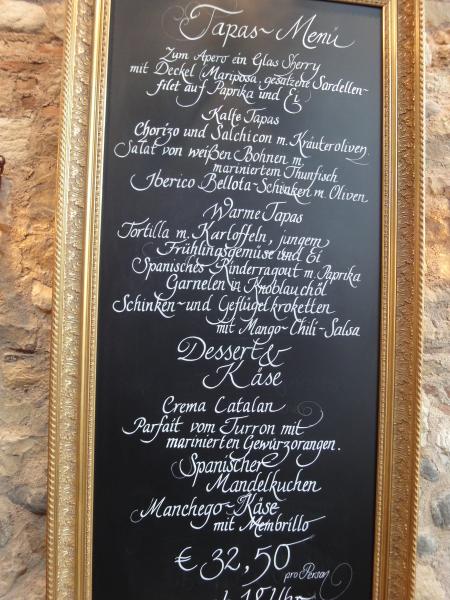 Tapas~Menü
Zum Apero ein Glas Sherry
mit Deckel (Mariposa, gesalzene Sardellen-
filet auf Paprika und Ei
Kalte Tapas
Chorizo und Salchicon m. Kräuteroliven
Salat von weißen Bohnen m.
mariniertem Thunfisch
Iberico Bellota-Schinken m. Oliven
Warme Tapas
Tortilla m. Kartoffeln, jungem
Frühlingsgemüse und Ei
Spanisches Rinderragout m. Paprika
Garnelen in Knoblauchöl
Schinken- und Geflügelkroketten
mit Mango-Chili-Salsa
Dessert &
Käse
Crema Catalan
Parfait vom Turron mit
marinierten Gewürzorangen.
Spanischer
Mandelkuchen
Manchego-Käse
mit Membrillo
€ 32,50
pro Person